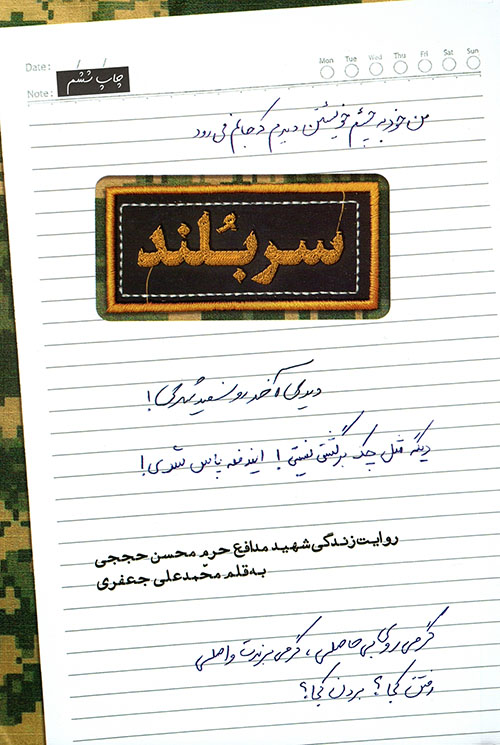 Date: / /
Mon Tue Wed Thu Fri Sat Sun
Note:
چاپ ششم
من خود به چشم خویشتن دیدم که جانم می‌رود
سربُلند
دیدی آخر رو سفید شدی!
دیگه مثل چک برگشتی نیستی! ایندفعه پاس شدی!
روایت زندگی شهید مدافع حرم محسن حججی
به قلم محمّدعلی جعفری
گر می‌روی بی‌حاصلی، گر می‌برندت واصلی
رفتن کجا؟ بردن کجا؟